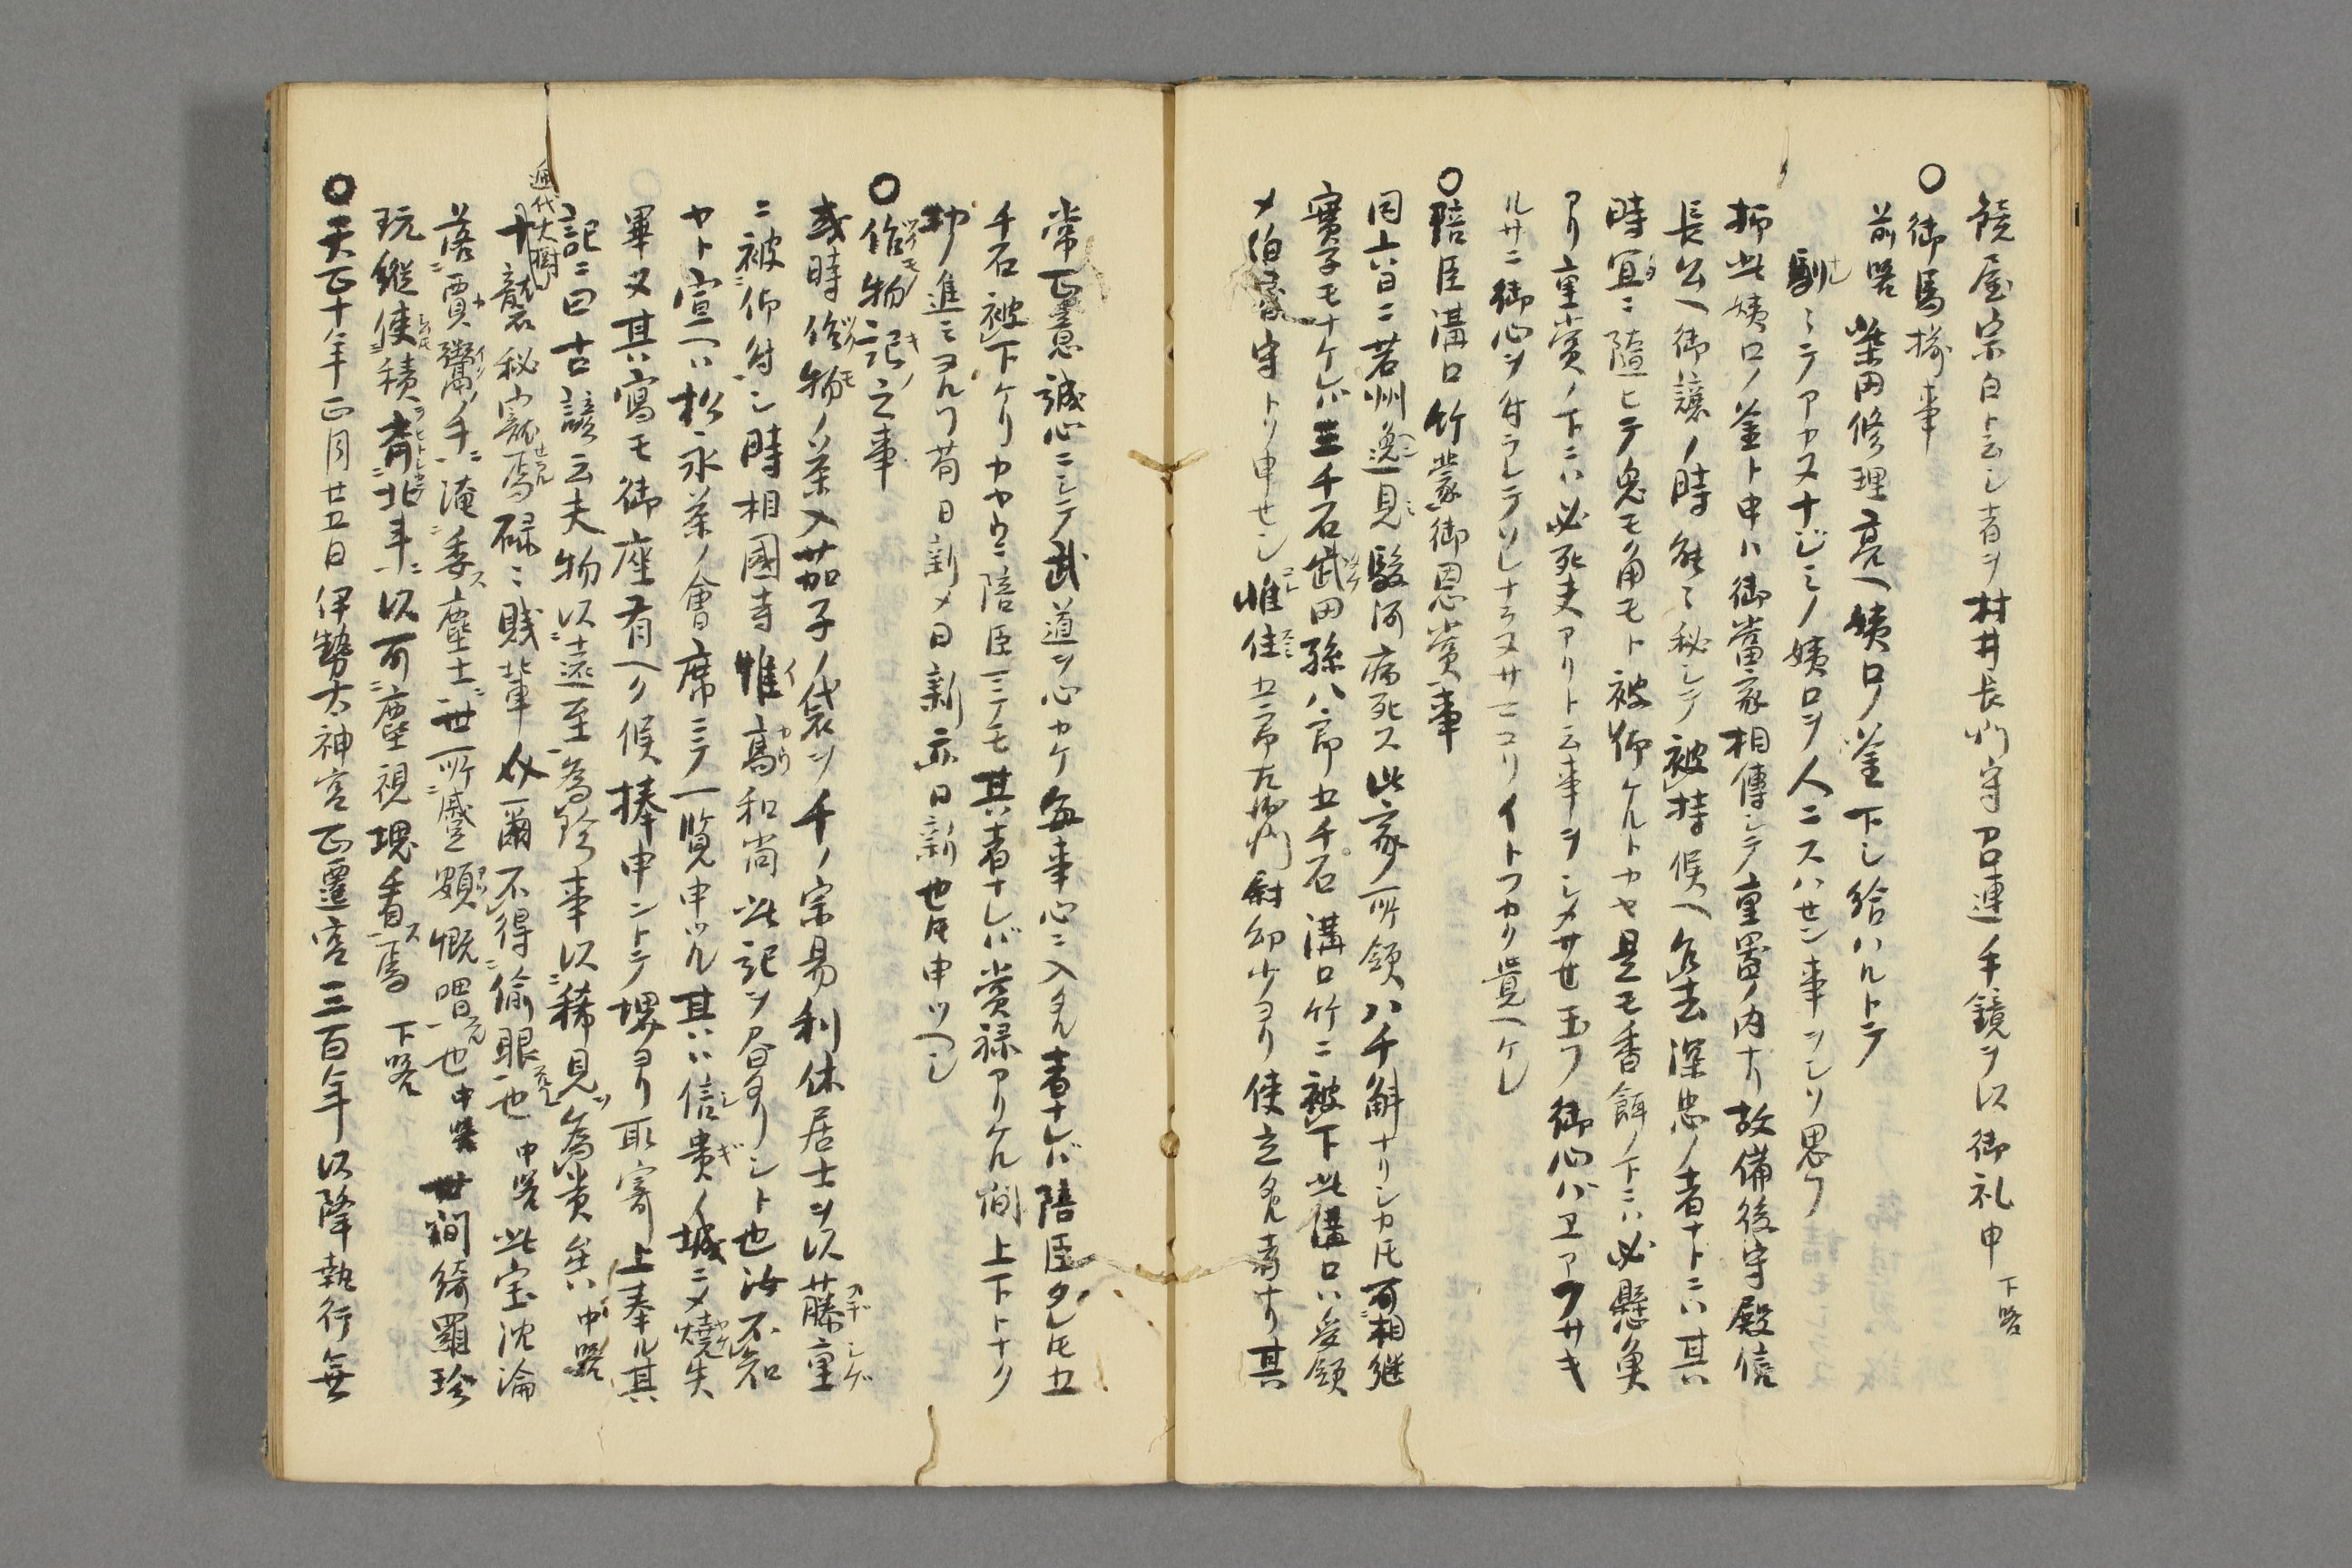 鏡屋宗白ト云シ者ヲ村井長門守召連手鏡ヲ以御礼申 下畧
○御馬揃事
前畧 柴田修理亮ヘ姨口ノ釜下シ給ハルトテ
馴々テアカヌナジミノ姨口ヲ人ニスハセン事ヲシソ思フ
抑此姨口ノ釜ト申ハ御當家相傳シテ重寳ノ内ナリ故備後守殿信
長公ヘ御譲ノ時能々秘シテ被持候ヘ忠深忠ノ者ナトニハ其
時宜ニ隨ヒテ兔モ角モト被仰ケルトカヤ是モ香餌ノ下ニハ必懸魚
アリ重賞ノ下ニハ必死夫アリト云事ヲシメサせ玉フ御心バエアフサキ
ルサニ御心ヲ付ラレテソレナラヌサニコリイトフカク覚ヘケレ
○陪臣溝口竹蒙御恩賞事
同六日ニ若州逸見駿河病死ス此家ノ所領八千斛ナリシカ氏可相継
實子モナケレバ三千石武田孫八郎五千石溝口竹ニ被下此溝口ハ受領
メ伯耆守トソ申せシ惟住五郎左衛門尉幼少ヨリ使立タル者ナリ其
常正豊忌誠心ニシテ武道ヲ心カケ毎事心ニ入タル者ナレバ陪臣タレ氏五
千石被下ケリカヤウニ陪臣ニテモ其者ナレバ賞禄アリケル間上下トナク
勤進ミヌルヿ苟日新メ日新亦日新也氏申ツヘシ
○作物記之事
或時作物ノ茶入茄子ノ袋ヲ千ノ宗易利休居士ヲ以藤重
ニ被仰付シ時相國寺惟高和尚此記ヲ昼タリシト也汝不知
ヤト宣ヘハ松永茶ノ會席ニテ一覧申ツル其ハ信貴ノ城ニメ燒失
畢又其寫モ御座有ヘク候捧申ントテ堺ヨリ取寄上奉ル其
記ニ曰古諺云夫物以遠至為珍事以稀見為貴矣 中畧
近代大樹
十襲秘寵焉碌々賤輩
奴爾不得偷眼也 中畧 此宝沈淪
落賈鬻ノ手淹委塵土世所蹙頞慨喟也 中畧 世間綺羅珍
玩縦使積斉北斗以可塵視塊看焉 下畧
○天正十年正月廿五日伊勢大神宮正遷宮三百年以降執行無